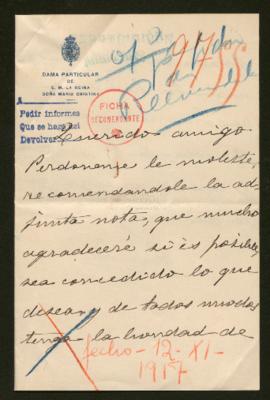 DAMA PARTICULAR
DE
S. M. LA REINA
DOÑA MARIA CRISTINA
Pedir informes
Que se haga así
Devolver
FICHA
RECOMENDANTE
Querido amigo
Perdoneme le moleste,
recomendandole la ad-
junta nota, que mucho
agradeceré si és posible,
sea concedido lo que
desean, y de todos modos
tenga la bondad de
fecho-12-XI-
1917